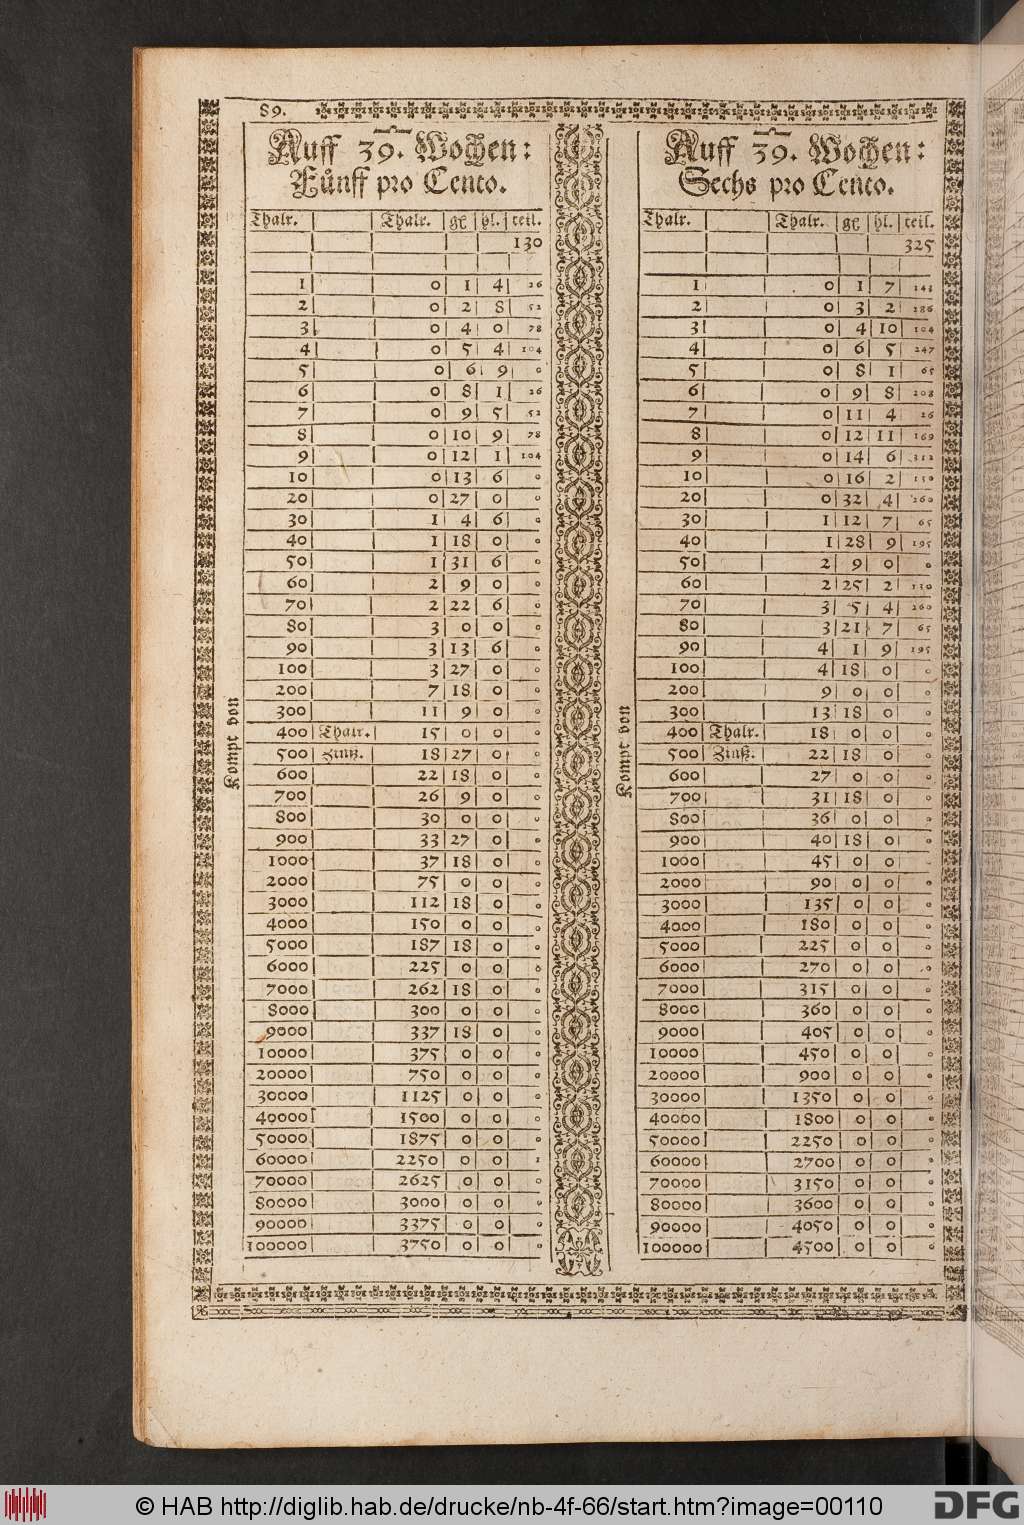 89.
Auff 39. Wochen:
Fünff pro Cento.
Thalr. Thalr. gl hl. teil.
130
1 0 1 4 26
2 0 2 8 52
3 0 4 0 78
4 0 5 4 104
5 0 6 9 0
6 0 8 1 26
7 0 9 5 52
8 0 10 9 78
9 0 12 1 104
10 0 13 6 0
20 0 27 0 0
30 1 4 6 0
40 1 18 0 0
50 1 31 6 0
60 2 9 0 0
70 2 22 6 0
80 3 0 0 0
90 3 13 6 0
100 3 27 0 0
200 7 18 0 0
300 11 9 0 0
400 Thalr. 15 0 0 0
500 Zinß. 18 27 0 0
600 22 18 0 0
700 26 9 0 0
800 30 0 0 0
900 33 27 0 0
1000 37 18 0 0
2000 75 0 0 0
3000 112 18 0 0
4000 150 0 0 0
5000 187 18 0 0
6000 225 0 0 0
7000 262 18 0 0
8000 300 0 0 0
9000 337 18 0 0
10000 375 0 0 0
20000 750 0 0 0
30000 1125 0 0 0
40000 1500 0 0 0
50000 1875 0 0 0
60000 2250 0 0 1
70000 2625 0 0 0
80000 3000 0 0 0
90000 3375 0 0 0
100000 3750 0 0 0
Kompt von
Auff 39. Wochen:
Sechs pro Cento.
Thalr. Thalr. gl hl. teil.
325
1 0 1 7 143
2 0 3 2 286
3 0 4 10 104
4 0 6 5 247
5 0 8 1 65
6 0 9 8 208
7 0 11 4 26
8 0 12 11 169
9 0 14 6 312
10 0 16 2 130
20 0 32 4 260
30 1 12 7 65
40 1 28 9 195
50 2 9 0 0
60 2 25 2 130
70 3 5 4 260
80 3 21 7 65
90 4 1 9 195
100 4 18 0 0
200 9 0 0 0
300 13 18 0 0
400 Thalr. 18 0 0 0
500 Zinß. 22 18 0 0
600 27 0 0 0
700 31 18 0 0
800 36 0 0 0
900 40 18 0 0
1000 45 0 0
2000 90 0 0 0
3000 135 0 0 0
4000 180 0 0 0
5000 225 0 0 0
6000 270 0 0 0
7000 315 0 0 0
8000 360 0 0 0
9000 405 0 0 0
10000 450 0 0 0
20000 900 0 0 0
30000 1350 0 0 0
40000 1800 0 0 0
50000 2250 0 0 0
60000 2700 0 0 0
70000 3150 0 0 0
80000 3600 0 0 0
90000 4050 0 0 0
100000 4500 0 0 0
Kompt von
© HAB http://diglib.hab.de/drucke/nb-4f-66/start.htm?image=00110
DFG